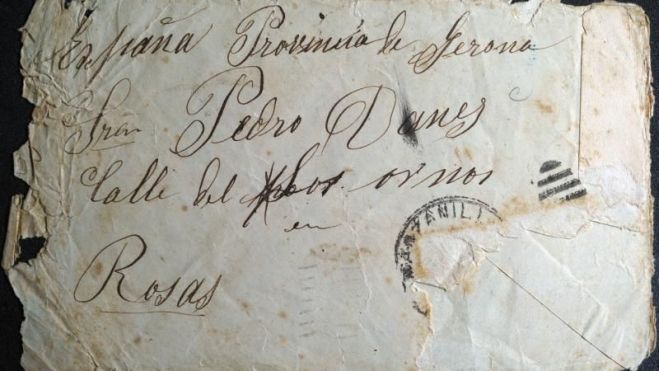 España Provincia de Gerona
Sren Pedro Danes
Calle del los ornos
en
Rosas
MANZANILL